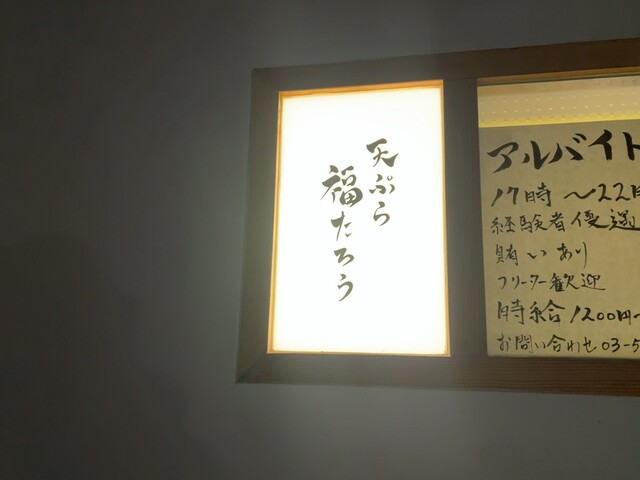 天ぷら
福たろう
アルバイト
17時 〜22時
経験者優遇
賄いあり
フリーター歓迎
時給1200円〜
お問い合わせ 03-5